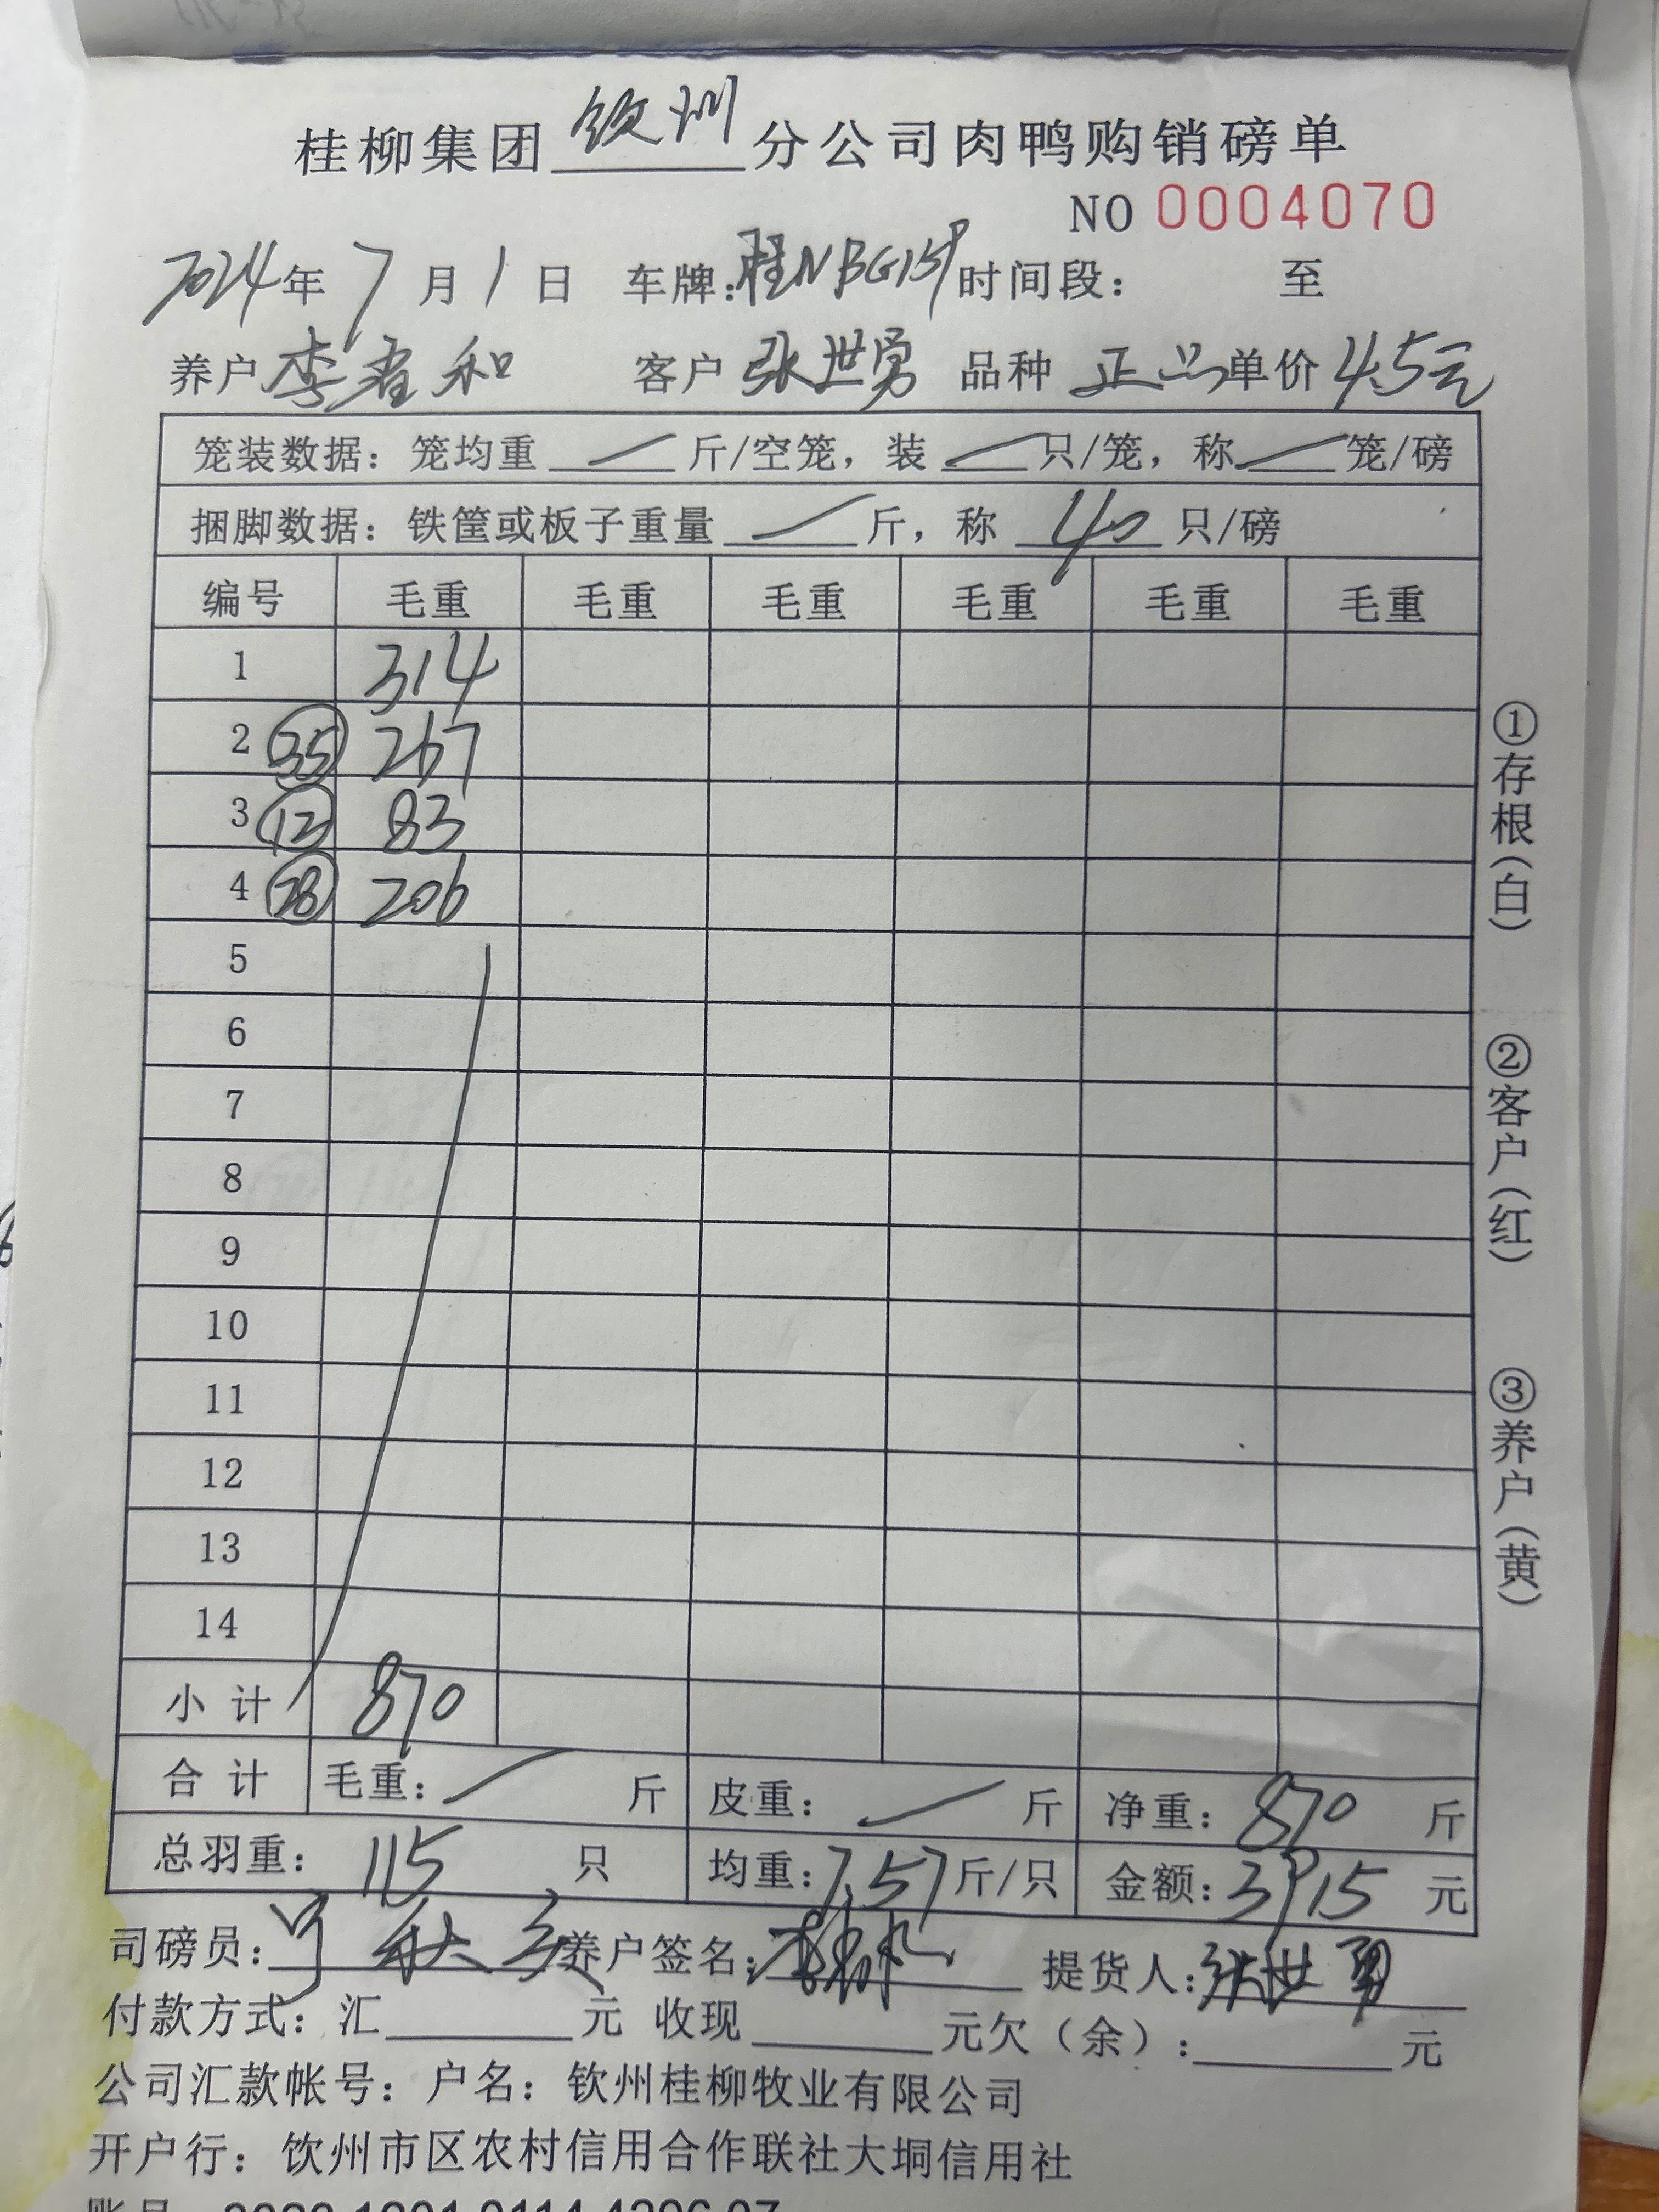 桂柳集团钦州分公司肉鸭购销磅单
NO 0004070
2024年7月1日 车牌:桂NBG159 时间段: 至
养户 李春和 客户 张世勇 品种 正品 单价 4.5元
笼装数据: 笼均重 — 斤/空笼, 装 — 只/笼, 称 — 笼/磅
捆脚数据: 铁筐或板子重量 — 斤, 称 40 只/磅
编号 毛重 毛重 毛重 毛重 毛重 毛重
1 314
2 35 267
3 12 83
4 28 206
5
6
7
8
9
10
11
12
13
14
小计 870
合计 毛重: — 斤 皮重: — 斤 净重: 870 斤
总羽重: 115 只 均重: 7.57 斤/只 金额: 3915 元
司磅员: 养户签名: 提货人: 张世勇
付款方式: 汇 元 收现 元欠(余): 元
公司汇款帐号: 户名: 钦州桂柳牧业有限公司
开户行: 钦州市区农村信用合作联社大垌信用社
①存根(白)
②客户(红)
③养户(黄)